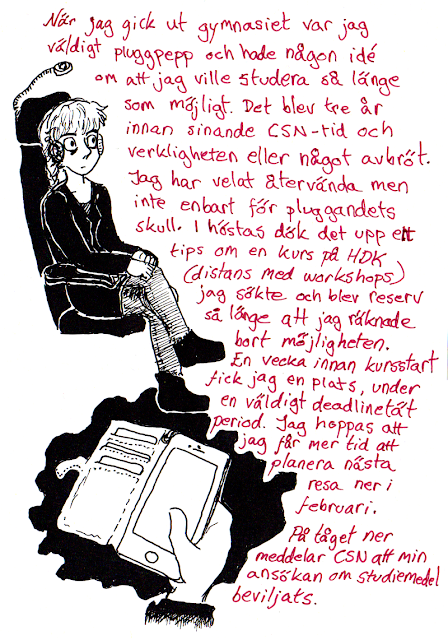 När jag gick ut gymnasiet var jag
väldigt pluggpepp och hade någon idé
om att jag ville studera så länge
som möjligt. Det blev tre år
innan sinande CSN-tid och
verkligheten eller något avbröt.
Jag har velat återvända men
inte enbart för pluggandets
skull. I höstas dök det upp ett
tips om en kurs på HDK
(distans med workshops)
jag sökte och blev reserv
så länge att jag räknade
bort möjligheten.
En vecka innan kursstart
fick jag en plats, under
en väldigt deadlinetät
period. Jag hoppas att
jag får mer tid att
planera nästa
resa ner i
februari.
På tåget ner
meddelar CSN att min
ansökan om studiemedel
beviljats.